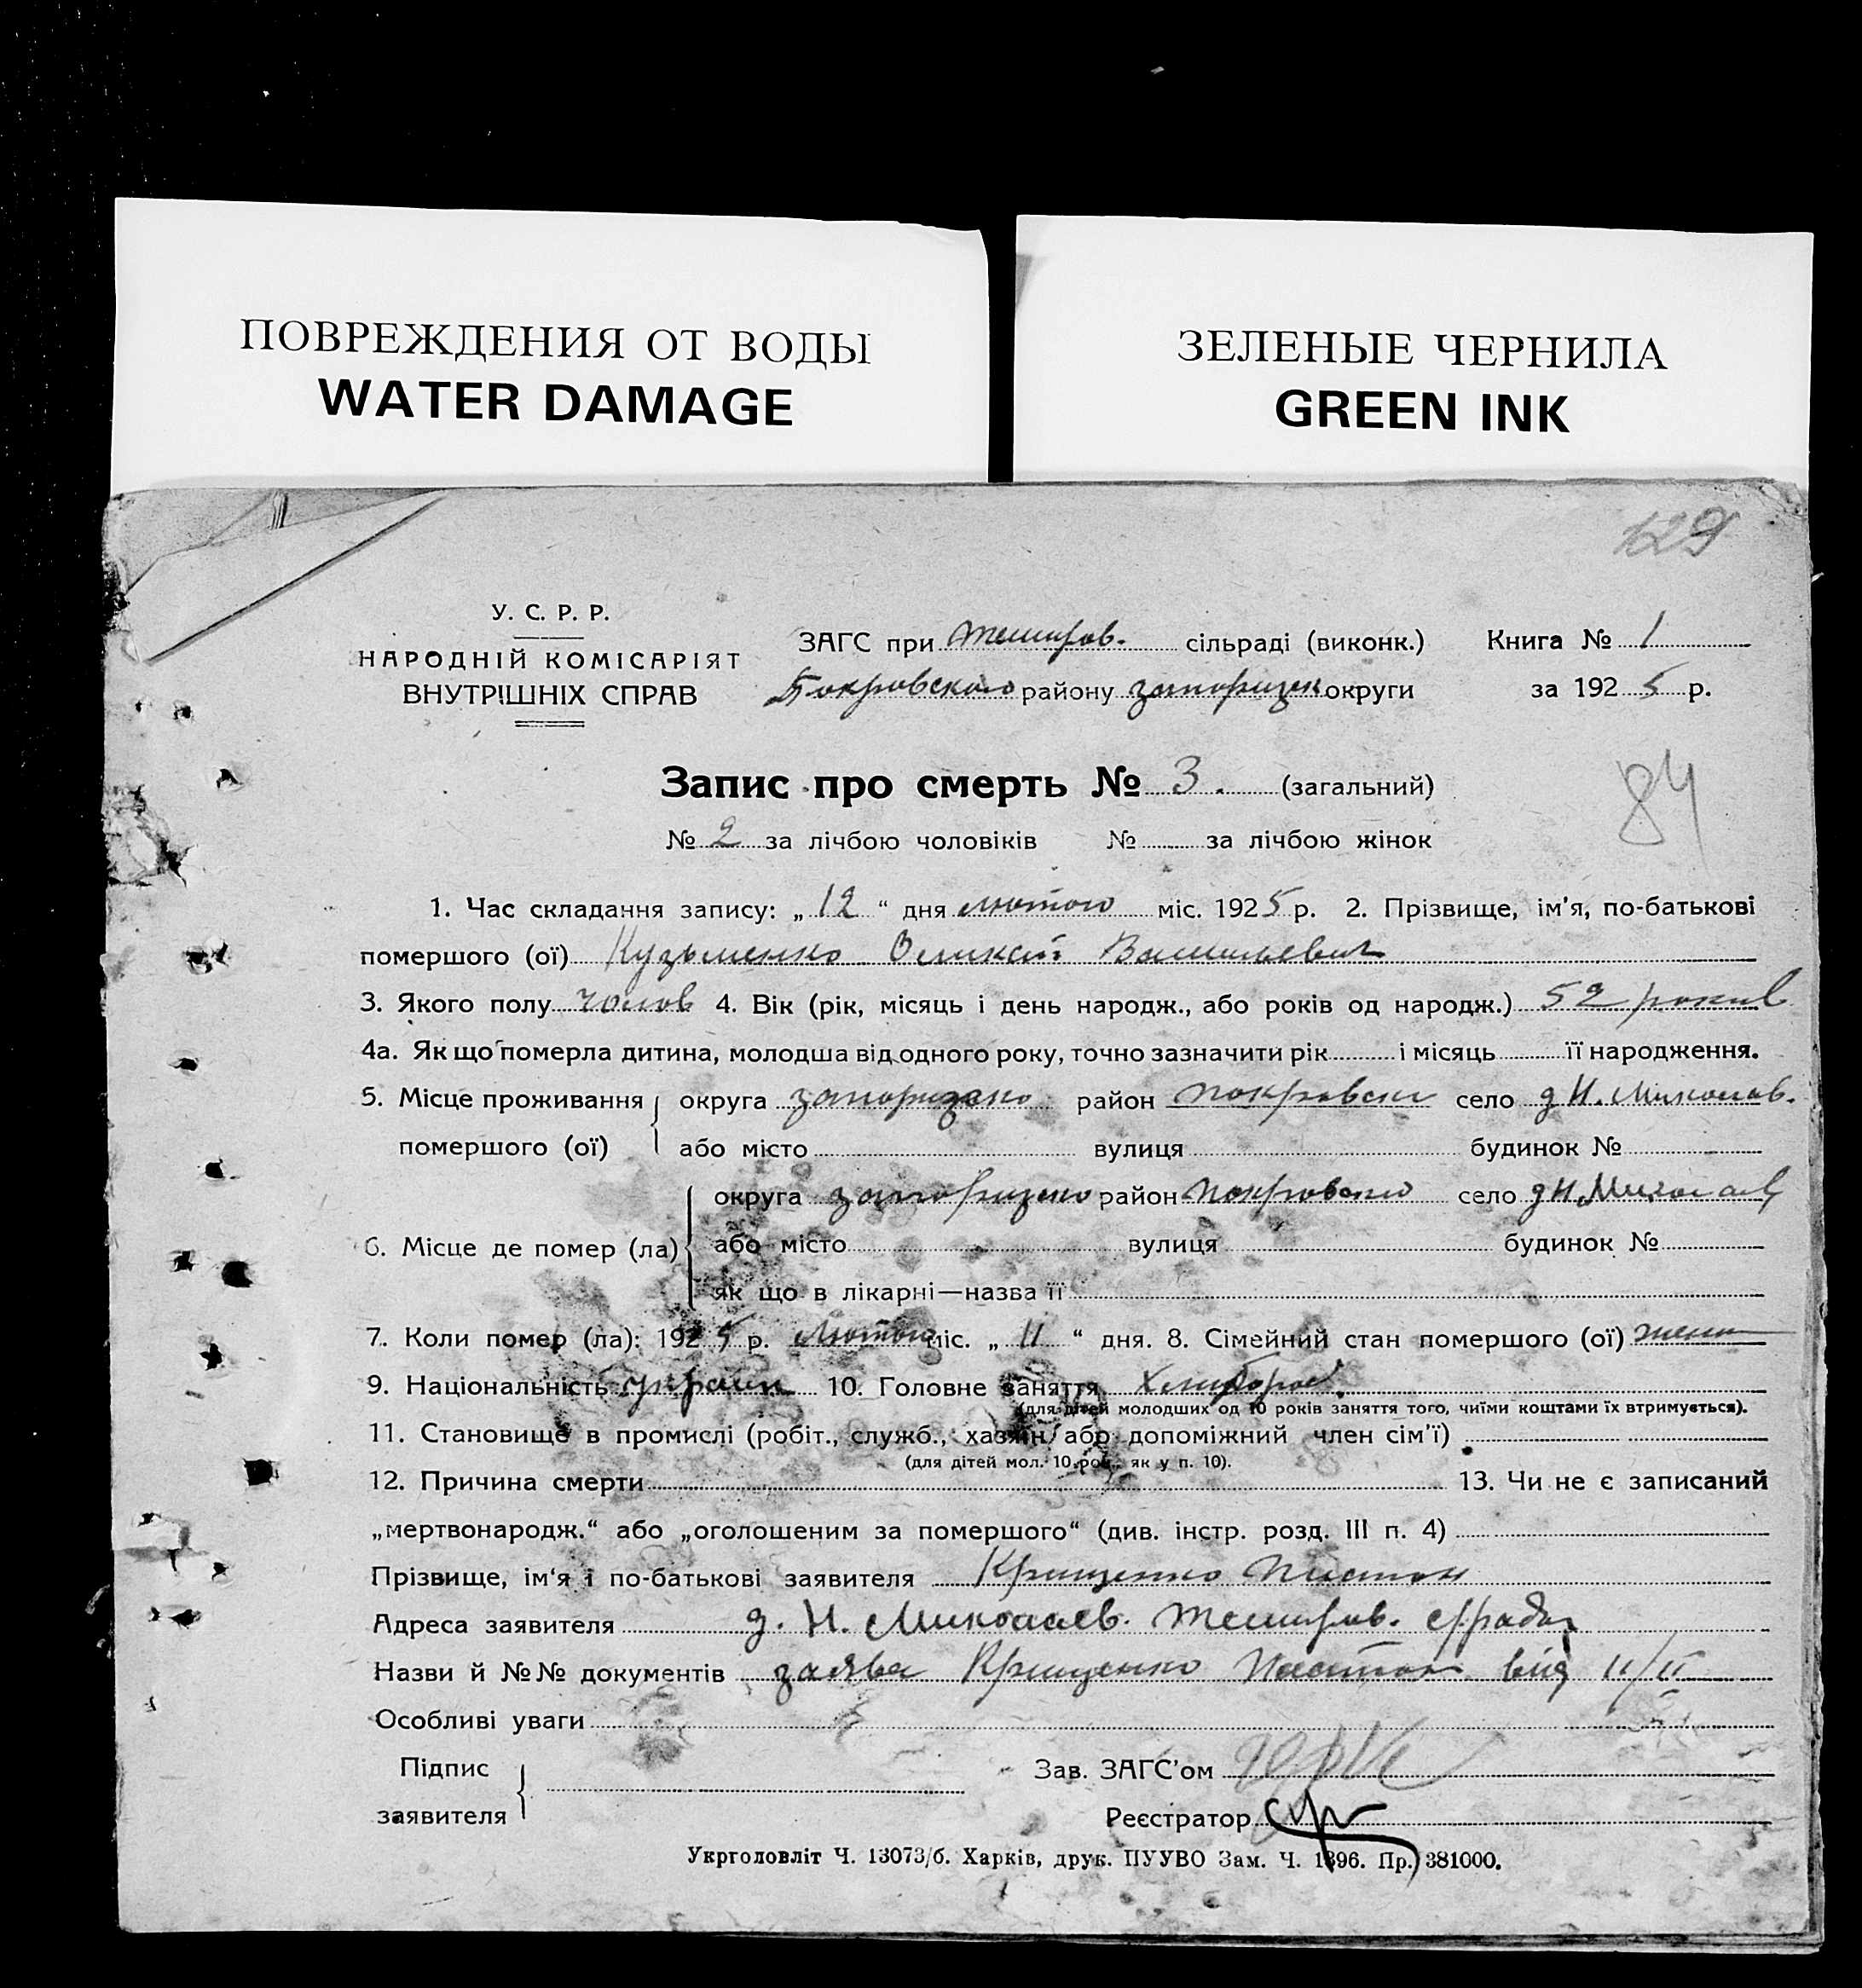 ПОВРЕЖДЕНИЯ ОТ ВОДЫ
WATER DAMAGE
ЗЕЛЕНЫЕ ЧЕРНИЛА
GREEN INK
129
У. С. Р. Р.
НАРОДНІЙ КОМІСАРІЯТ
ВНУТРІШНІХ СПРАВ
ЗАГС при Темиров. сільраді (виконк.) Книга № 1
Покровского району запорізьк округи за 1925 р.
Запис про смерть № 3. (загальний)
84
№ 2 за лічбою чоловіків № за лічбою жінок
1. Час складання запису: „12“ дня лютого міс. 1925 р. 2. Прізвище, ім'я, по-батькові
помершого (ої) Кузьменко Оликсій Васильевич
3. Якого полу чолов 4. Вік (рік, місяць і день народж., або років од народж.) 52 років
4а. Як що померла дитина, молодша від одного року, точно зазначити рік і місяць її народження.
5. Місце проживання округа район покровськ село д Н. Миколаев.
помершого (ої) або місто вулиця будинок №
округа район село д Н. Миколаев
6. Місце де помер (ла) або місто вулиця будинок №
як що в лікарні—назва її
7. Коли помер (ла): 1925 р. Лютого міс. „11“ дня. 8. Сімейний стан помершого (ої) жен
9. Національність україн 10. Головне заняття Хлибороб
(для дітей молодших од 10 років заняття того, чиїми коштами їх втримується).
11. Становище в промислі (робіт., служб., хазяїн, або допоміжний член сім'ї)
(для дітей мол. 10 рок., як у п. 10).
12. Причина смерти 13. Чи не є записаний
„мертвонародж.“ або „оголошеним за помершого“ (див. інстр. розд. III п. 4)
Прізвище, ім'я і по-батькові заявителя Крищенко Платон
Адреса заявителя д. Н. Миколаев. Темиров. с/рада
Назви й №№ документів заява Крищенко Платон від 11/II
Особливі уваги
Підпис
заявителя
Зав. ЗАГС'ом
Реєстратор
Укрголовліт Ч. 13073/б. Харків, друк. ПУУВО Зам. Ч. 1396. Пр. 381000.